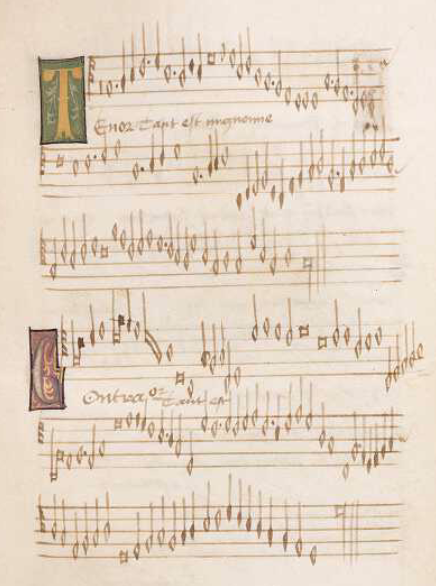 Tenor Tant est mignonne
Contra or Tant est